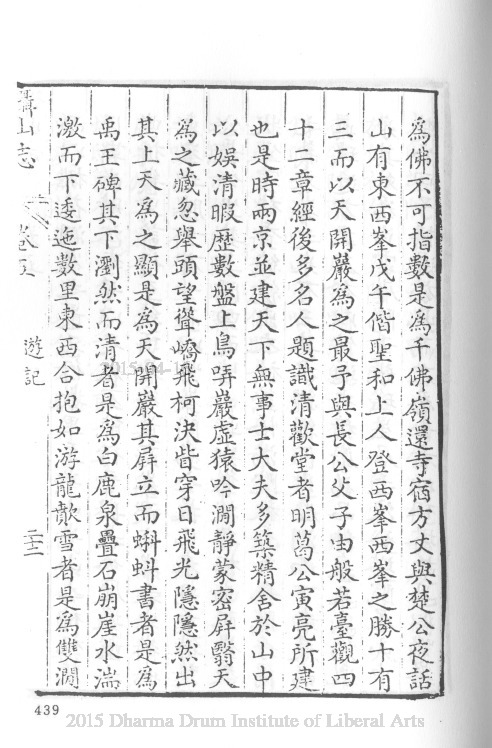 為佛不可指數是為千佛嶺還寺宿方丈與楚公夜話
山有東西峯戊午偕聖和上人登西峯西峯之勝十有
三而以天開巖為之最予與長公父子由般若臺觀四
十二章經後多名人題識清歡堂者明葛公寅亮所建
也是時兩京並建天下無事士大夫多築精舍於山中
以娛清暇歷數盤上鳥哢巖虛猿吟澗靜蒙密屏翳天
為之藏忽舉頭望聳嶠飛柯決眥穿日飛光隱隱然出
其上天為之顯是為天開巖其屏立而蝌蚪書者是為
禹王碑其下瀏然而清者是為白鹿泉疊石崩崖水湍
激而下逶迤數里東西合抱如游龍歕雪者是為雙澗
山志 卷五 遊記 二十二
439
2015 Dharma Drum Institute of Liberal Arts